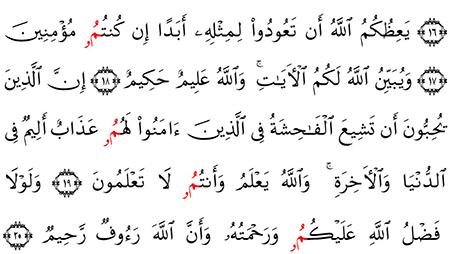 ﴿١٦﴾ يَعِظُكُمُ ٱللَّهُ أَن تَعُودُواْ لِمِثْلِهِۦٓ أَبَدًا إِن كُنتُمُۥ مُؤْمِنِينَ
﴿١٧﴾ وَيُبَيِّنُ ٱللَّهُ لَكُمُ ٱلْأَيَٰتِۚ وَٱللَّهُ عَلِيمٌ حَكِيمٌ ﴿١٨﴾ إِنَّ ٱلَّذِينَ
يُحِبُّونَ أَن تَشِيعَ ٱلْفَٰحِشَةُ فِى ٱلَّذِينَ ءَامَنُواْ لَهُمُۥ عَذَابٌ أَلِيمٌ فِى
ٱلدُّنْيَا وَٱلْأَخِرَةِۚ وَٱللَّهُ يَعْلَمُ وَأَنتُمُۥ لَا تَعْلَمُونَ ﴿١٩﴾ وَلَوْلَا
فَضْلُ ٱللَّهِ عَلَيْكُمُۥ وَرَحْمَتُهُۥ وَأَنَّ ٱللَّهَ رَءُوفٌ رَّحِيمٌ ﴿٢٠﴾